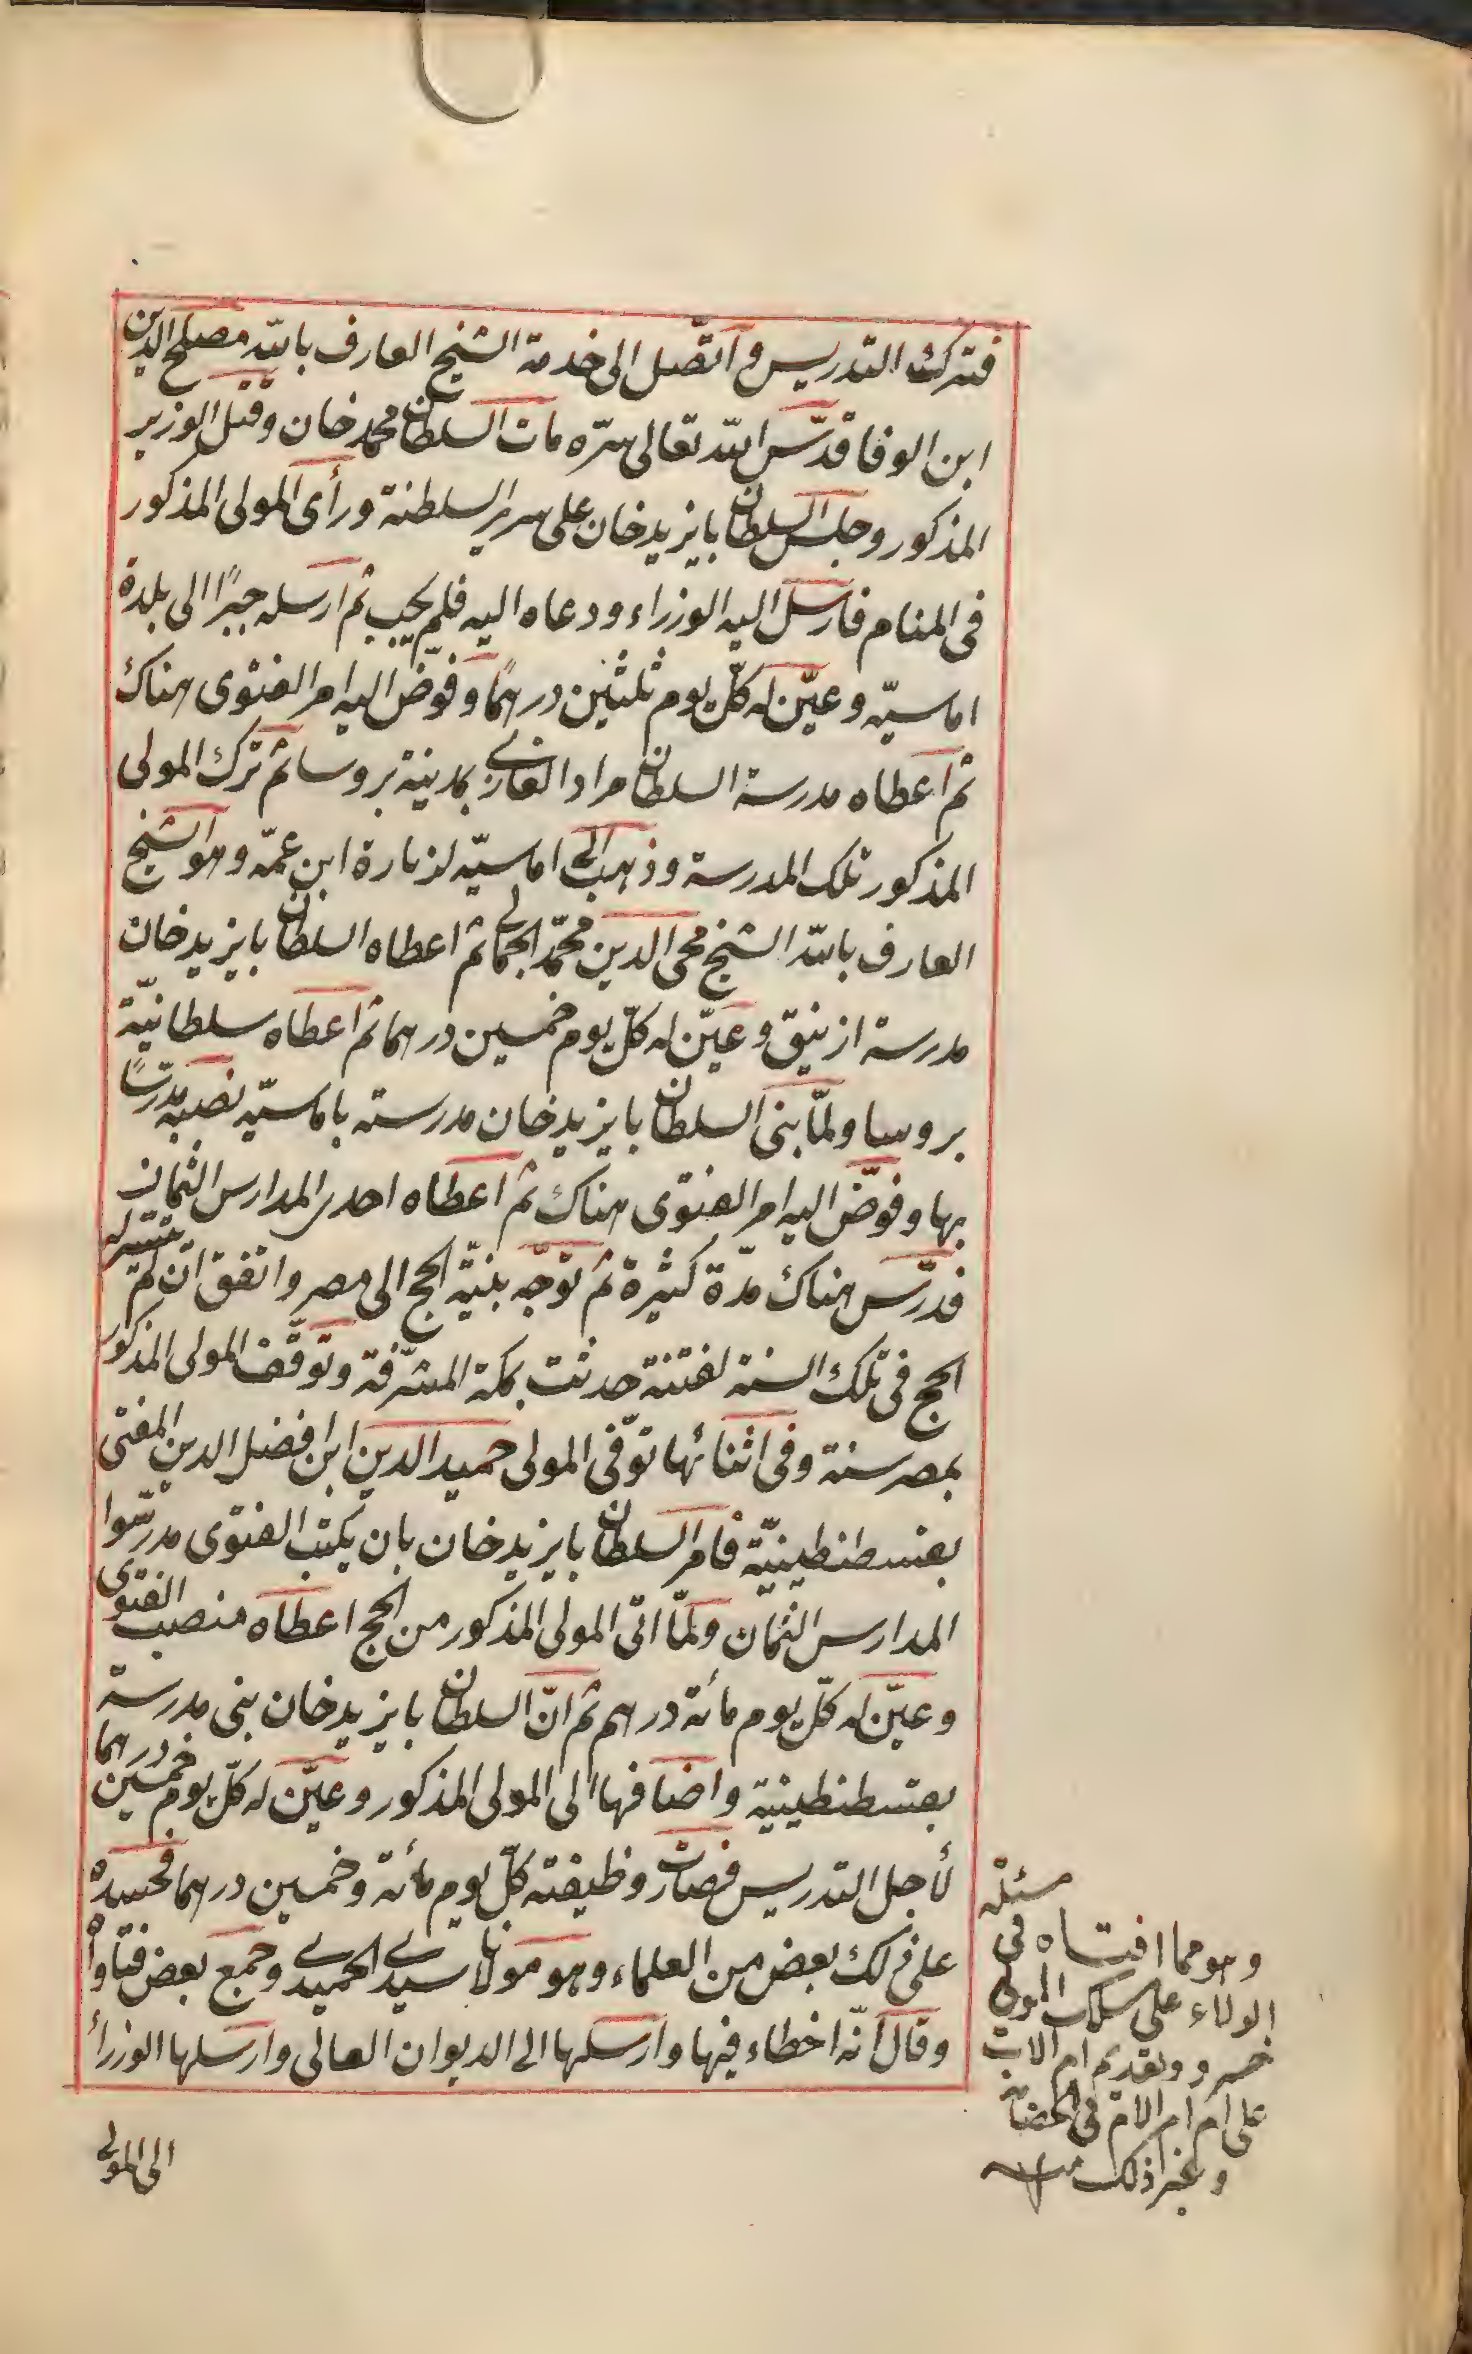 فترك التدريس واتّصل الى خدمة الشيخ العارف بالله مصلح الدين
ابن الوفا قدّس الله تعالى سرّه مات السلطان محمد خان وقتل الوزير
المذكور وجلس السلطان بايزيد خان على سرير السلطنة ورأى المولى المذكور
فى المنام فارسل اليه الوزراء ودعاه اليه فلم يجيب ثم ارسله جبرًا الى بلدة
اماسيّه وعيّن له كلّ يوم ثلثين درهمًا وفوّض اليه امر الفتوى هناك
ثم اعطاه مدرسة السلطان مراد الغازى بمدينة بروسا ثم ترك المولى
المذكور تلك المدرسة وذهب الى اماسيّه لزيارة ابن عمّه وهو الشيخ
العارف بالله الشيخ محى الدين محمّد الجمالى ثم اعطاه السلطان بايزيد خان
مدرسة ازنيق وعيّن له كلّ يوم خمسين درهما ثم اعطاه سلطانيّة
بروسا ولمّا بنى السلطان بايزيد خان مدرسته باماسيّه نصبه مدرّسًا
بها وفوّض اليه امر الفتوى هناك ثم اعطاه احدى المدارس الثمان
فدرّس هناك مدّة كثيرة ثم توجّه بنيّة الحج الى مصر واتفق ان لم يتيسّر له
الحج فى تلك السنة لفتنة حدثت بمكة المشرّفة وتوقّف المولى المذكور
بمصر سنة وفى اثنائها توّفى المولى حميد الدين ابن افضل الدين المفتى
بقسطنطينيّة فامر السلطان بايزيد خان بان يكتب الفتوى مدرّسوا
المدارس الثمان ولمّا اتى المولى المذكور من الحج اعطاه منصب الفتوى
وعيّن له كلّ يوم مائة درهم ثم انّ السلطان بايزيد خان بنى مدرسة
بقسطنطينية واضافها الى المولى المذكور وعيّن له كلّ يوم خمسين درهما
لأجل التدريس فصارت وظيفته كلّ يوم مائة وخمسين درهما فحسده
على ذلك بعض من العلماء وهو مولانا سيدى الحميدى وجمع بعض فتاواه
وقال انّه اخطاء فيها وارسلها الى الديوان العالى وارسلها الوزرأ
الى المولى
مسئله
وهو مما افتاه فى
الولاء على مسلك المولى
خسرو وتقديم ام الاب
على ام ام الام فى الحضانة
وغير ذلك منه